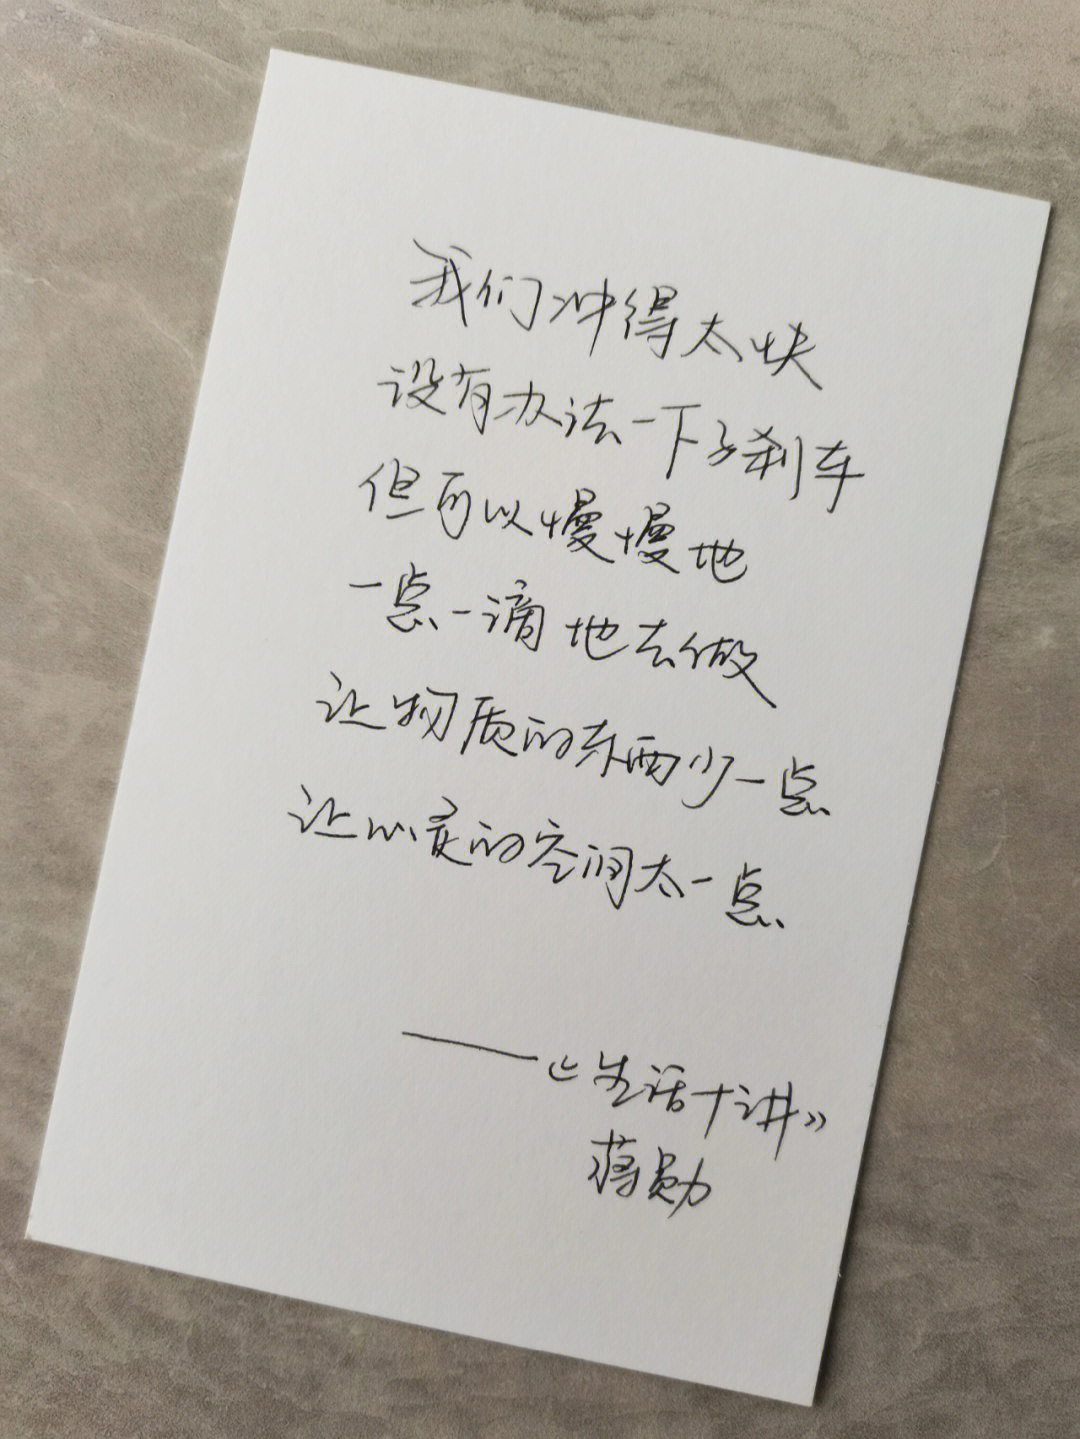 我们冲得太快
没有办法一下子刹车
但可以慢慢地
一点一滴地去做
让物质的东西少一点
让心灵的空间大一点
——《生活十讲》
蒋勋